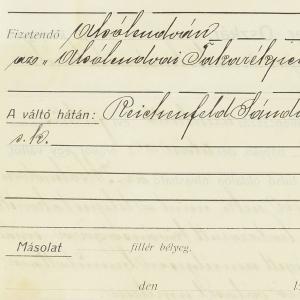 Fizetendő Alsólendván
az „Alsólendvai Takarékpén
A váltó hátán: Reichenfeld Sándo
s. k.
Másolat fillér bélyeg.
den 1